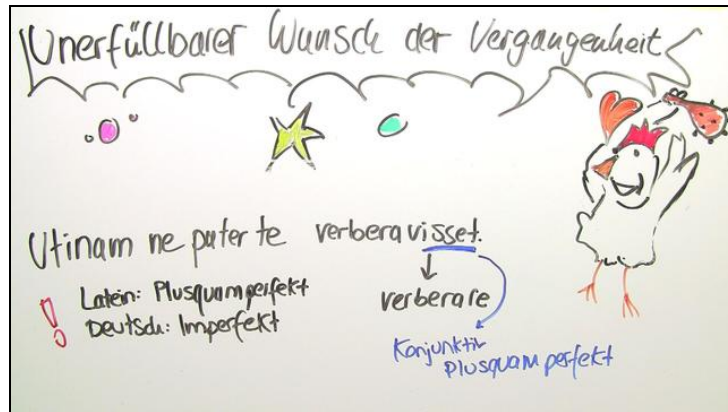 Unerfüllbarer Wunsch der Vergangenheit
Utinam ne pater te verberavisset.
! Latein: Plusquamperfekt
Deutsch: Imperfekt
verberare
Konjunktiv
Plusquamperfekt